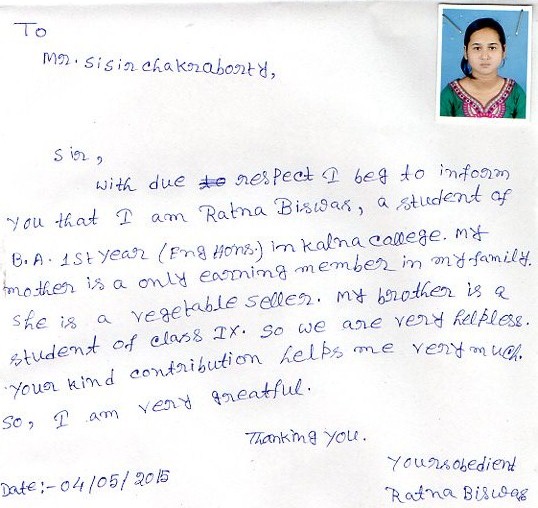 To
Mr. Sisir chakraborty,
Sir,
With due to respect I beg to inform
you that I am Ratna Biswas, a student of
B.A. 1st year (Eng Hons.) in Kalna college. My
mother is a only earning member in my family.
She is a vegetable seller. My brother is a
student of class IX. So we are very helpless.
Your kind contribution helps me very much.
So, I am very greatful.
Thanking you.
Yoursobedient
Ratna Biswas
Date:- 04/05/2015